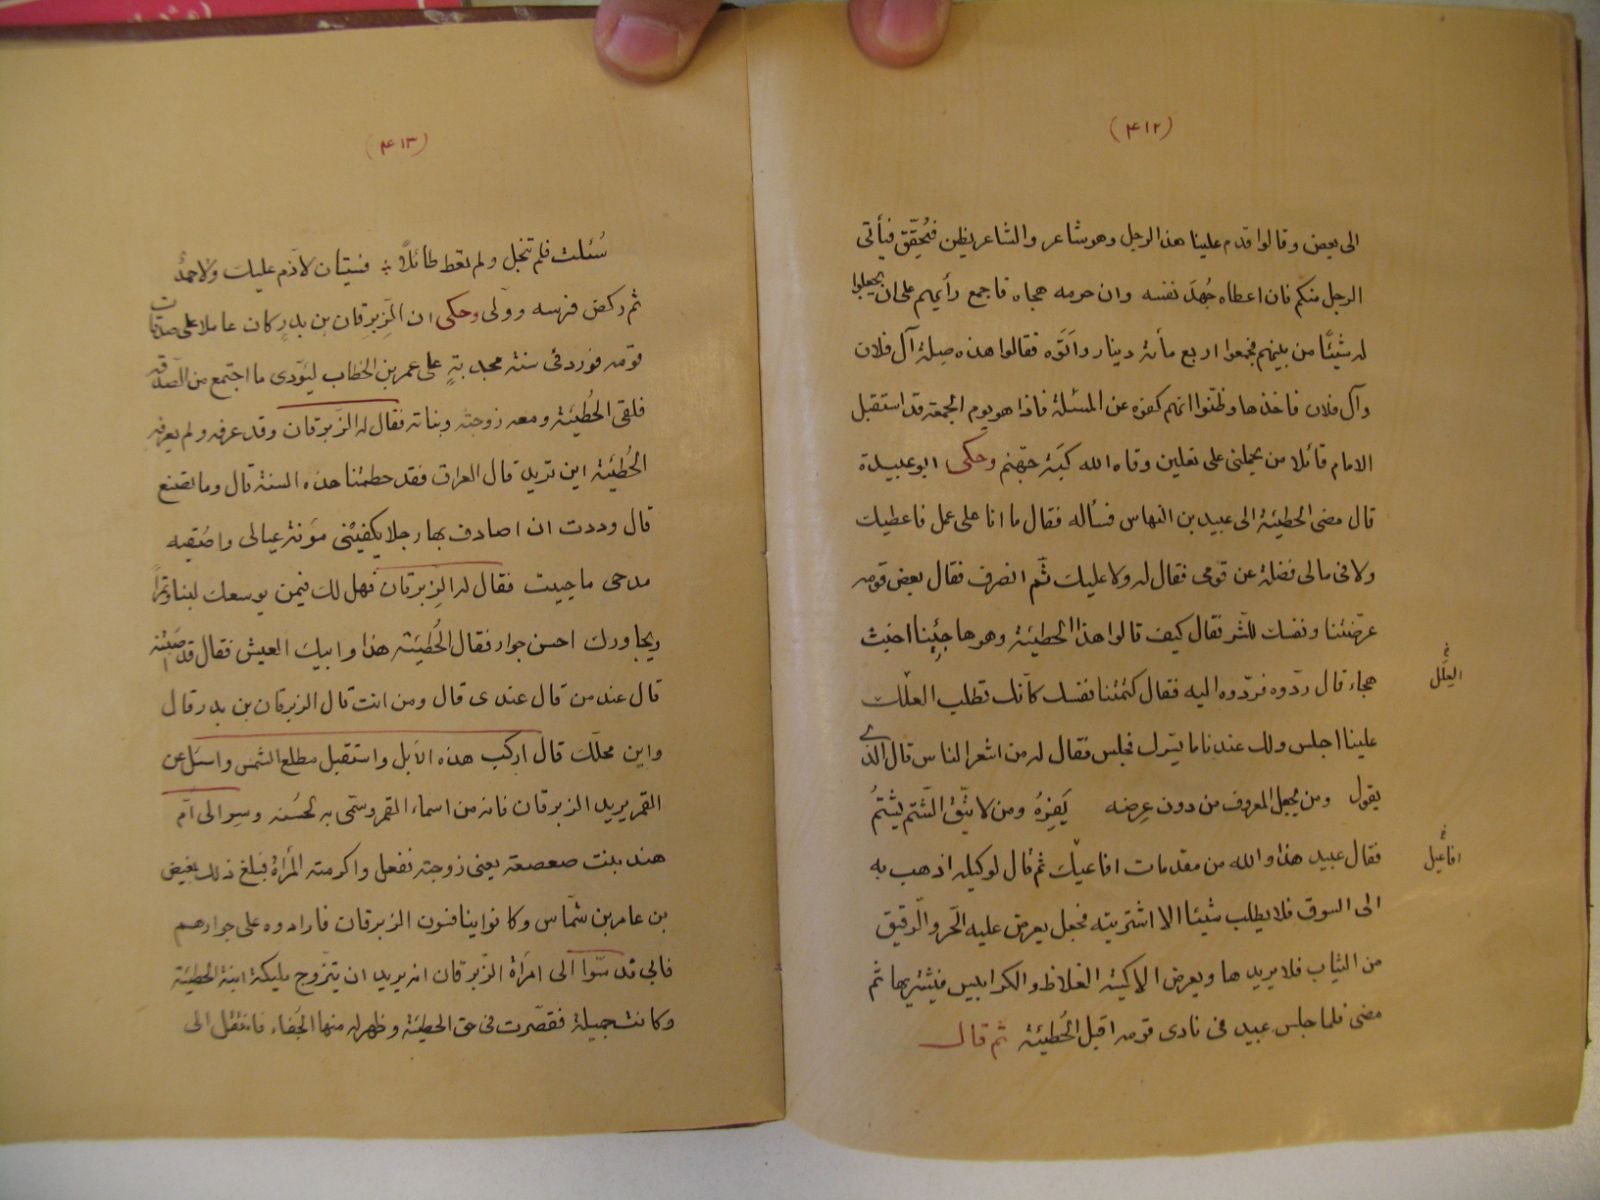 (۴۱۲)
الى بعض وقالوا قدم علينا هذا الرجل وهو شاعر والشاعر يظن فيُحقّق فيأتى
الرجل منكم فان اعطاه جُهدَ نفسه وان حرمه هجاه فاجمع رأيهم على ان يجعلوا
له شيئًا من بينهم فجمعوا اربع مأنة دينار واتَوه فقالوا هذه صِلة آل فلان
وآل فلان فاخذها وظنّوا انهم كفوه عن المسئلة فاذا هو يوم الجمعة قد استقبل
الامام قائلا من يحملنى على نعلين وقاه الله كبّة جهّنم وحكى ابو عبيدة
قال مضى الحطيئة الى عبيد بن النهاس فسأله فقال ما انا على عمل فاعطيك
ولا فى مالى فضلة عن قومى فقال له ولا عليك ثم انصرف فقال بعض قومه
عرّضتنا ونفسك للشّر فقال كيف قالوا هذا الحطيئة وهو هاجِئنا اخبث
هجاء قال ردّوه فردّوه اليه فقال كتمتنا نفسك كأنك تطلب العلّلت
العِلَل
علينا اجلس ولك عندنا ما يسّرك فجلس فقال له من اشعر الناس قال الذى
يقول ومن يجعل المعروف من دون عِرضه يَفِرْهُ ومن لا يتّق الشّتم يُشتَمُ
فقال عبيد هذا والله من مقدمات افاعيلك ثم قال لوكيله اذهب به
افاعيل
الى السوق فلا يطلب شيئا الا اشتريته فجعل يعرض عليه الخّز والّرقيق
من الثياب فلا يريدها ويعرض الاكيسة الغلاظ والكرابيس فيشتريها ثم
مضى فلما جلس عبيد فى نادى قومه اقبل الحُطيئة ثم قال
(۴۱۳)
سُئلت فلم تبخل ولم تعط طائلاً فسيّان لا ذم عليك ولا حمدُ
ثم ركض فرسه وولّى وحكى ان الزِبرِقان بن بدر كان عاملا على صدقات
قومه فورد فى سنة مجدبةٍ على عمر بن الخطاب ليؤدى ما اجتمع من الصّدقة
فلقى الحُطيئة ومعه زوجته وبناته فقال له الزّبرقان وقد عرفه ولم يعرفه
الحُطيئة اين تريد قال العراق فقد حطمتنا هذه السنة قال وما تصنع
قال وددت ان اصادف بها رجلا يكفيَنى مؤنة عيالى واصُفيه
مدحى ما حييت فقال له الزِبرقان فهل لك فيمن يوسعك لبنا وتمراً
ويجاورك احسن جوار فقال الحُطيئة هذا وابيك العيش فقال قد اصبته
قال عند من قال عندى قال ومن انت قال الزبرقان بن بدر قال
واين محلّك قال اركب هذه الابل واستقبل مطلع الشمس واسئل عن
القمر يريد الزبرقان فانه من اسماء القمر وسمّى به لحُسنه وسِر الى اُم
هند بنت صعصعة يعنى زوجته ففعل واكرمته المرأة فبلغ ذلك بغيض
بن عامر بن شمّاس وكانوا ينافنون الزبرقان فارادوه على جوارهم
فابى فدسّوا الى امرأة الزّبرقان انه يريد ان يتزّوج مليكة ابنة الحطيئة
وكانت جميلة فقصّرت فى حق الحطيئة وظهر له منها الجُفاء فانتقل الى